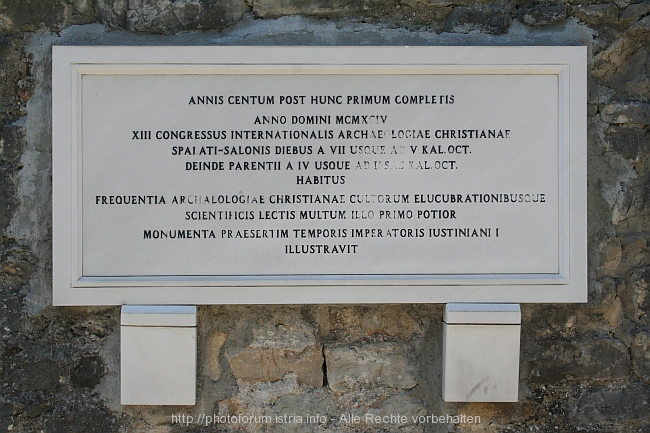 ANNIS CENTUM POST HUNC PRIMUM COMPLETIS
ANNO DOMINI MCMXCIV
XIII CONGRESSUS INTERNATIONALIS ARCHAEOLOGIAE CHRISTIANAE
SPALATI-SALONIS DIEBUS A VII USQUE AD V KAL.OCT.
DEINDE PARENTII A IV USQUE AD IPSAS KAL.OCT.
HABITUS
FREQUENTIA ARCHALOLOGIAE CHRISTIANAE CULTORUM ELUCUBRATIONIBUSQUE
SCIENTIFICIS LECTIS MULTUM ILLO PRIMO POTIOR
MONUMENTA PRAESERTIM TEMPORIS IMPERATORIS IUSTINIANI I
ILLUSTRAVIT
http://photoforum.istria.info - Alle Rechte vorbehalten